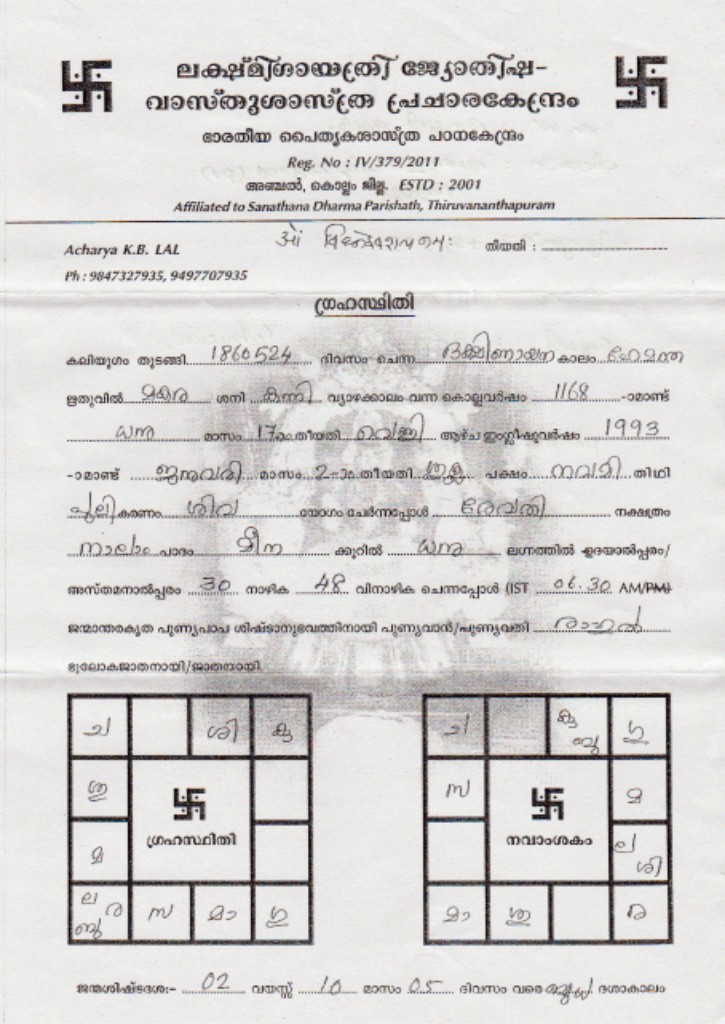 ലക്ഷ്മിഗായത്രി ജ്യോതിഷ-
വാസ്തുശാസ്ത്ര പ്രചാരകേന്ദ്രം
ഭാരതീയ പൈതൃകശാസ്ത്ര പഠനകേന്ദ്രം
Reg. No : IV/379/2011
അഞ്ചൽ, കൊല്ലം ജില്ല. ESTD : 2001
Affiliated to Sanathana Dharma Parishath, Thiruvananthapuram
Acharya K.B. LAL തീയതി :
Ph : 9847327935, 9497707935
ഗ്രഹസ്ഥിതി
കലിയുഗം തുടങ്ങി 1860524 ദിവസം ചെന്ന ദക്ഷിണായന കാലം ഹേമന്ത
ഋതുവിൽ മകര ശനി കന്നി വ്യാഴക്കാലം വന്ന കൊല്ലവർഷം 1168 -ാമാണ്ട്
ധനു മാസം 17ാം തീയതി വെള്ളി ആഴ്ച ഇംഗ്ലീഷുവർഷം 1993
-ാമാണ്ട് ജനുവരി മാസം 2-ാം തീയതി ശുക്ല പക്ഷം നവമി തിഥി
പുലി കരണം ശിവ യോഗം ചേർന്നപ്പോൾ രേവതി നക്ഷത്രം
നാലാം പാദം മീന ക്കൂറിൽ ധനു ലഗ്നത്തിൽ ഉദയാൽപ്പരം/
അസ്തമനാൽപ്പരം 30 നാഴിക 48 വിനാഴിക ചെന്നപ്പോൾ (IST 06.30 AM/PM)
ജന്മാന്തരകൃത പുണ്യപാപ ശിഷ്ടാനുഭവത്തിനായി പുണ്യവാൻ/പുണ്യവതി രാഹുൽ
ഭൂലോകജാതനായി/ജാതയായി.
ച ശി കു ച കു ബു ഗു
ശു സ മ
ഗ്രഹസ്ഥിതി നവാംശകം
മ ല ശി
ല ര ബു സ മാ ഗു മാ ശു ര
ജന്മശിഷ്ടദശ:- 02 വയസ്സ് 10 മാസം 05 ദിവസം വരെ ദശാകാലം